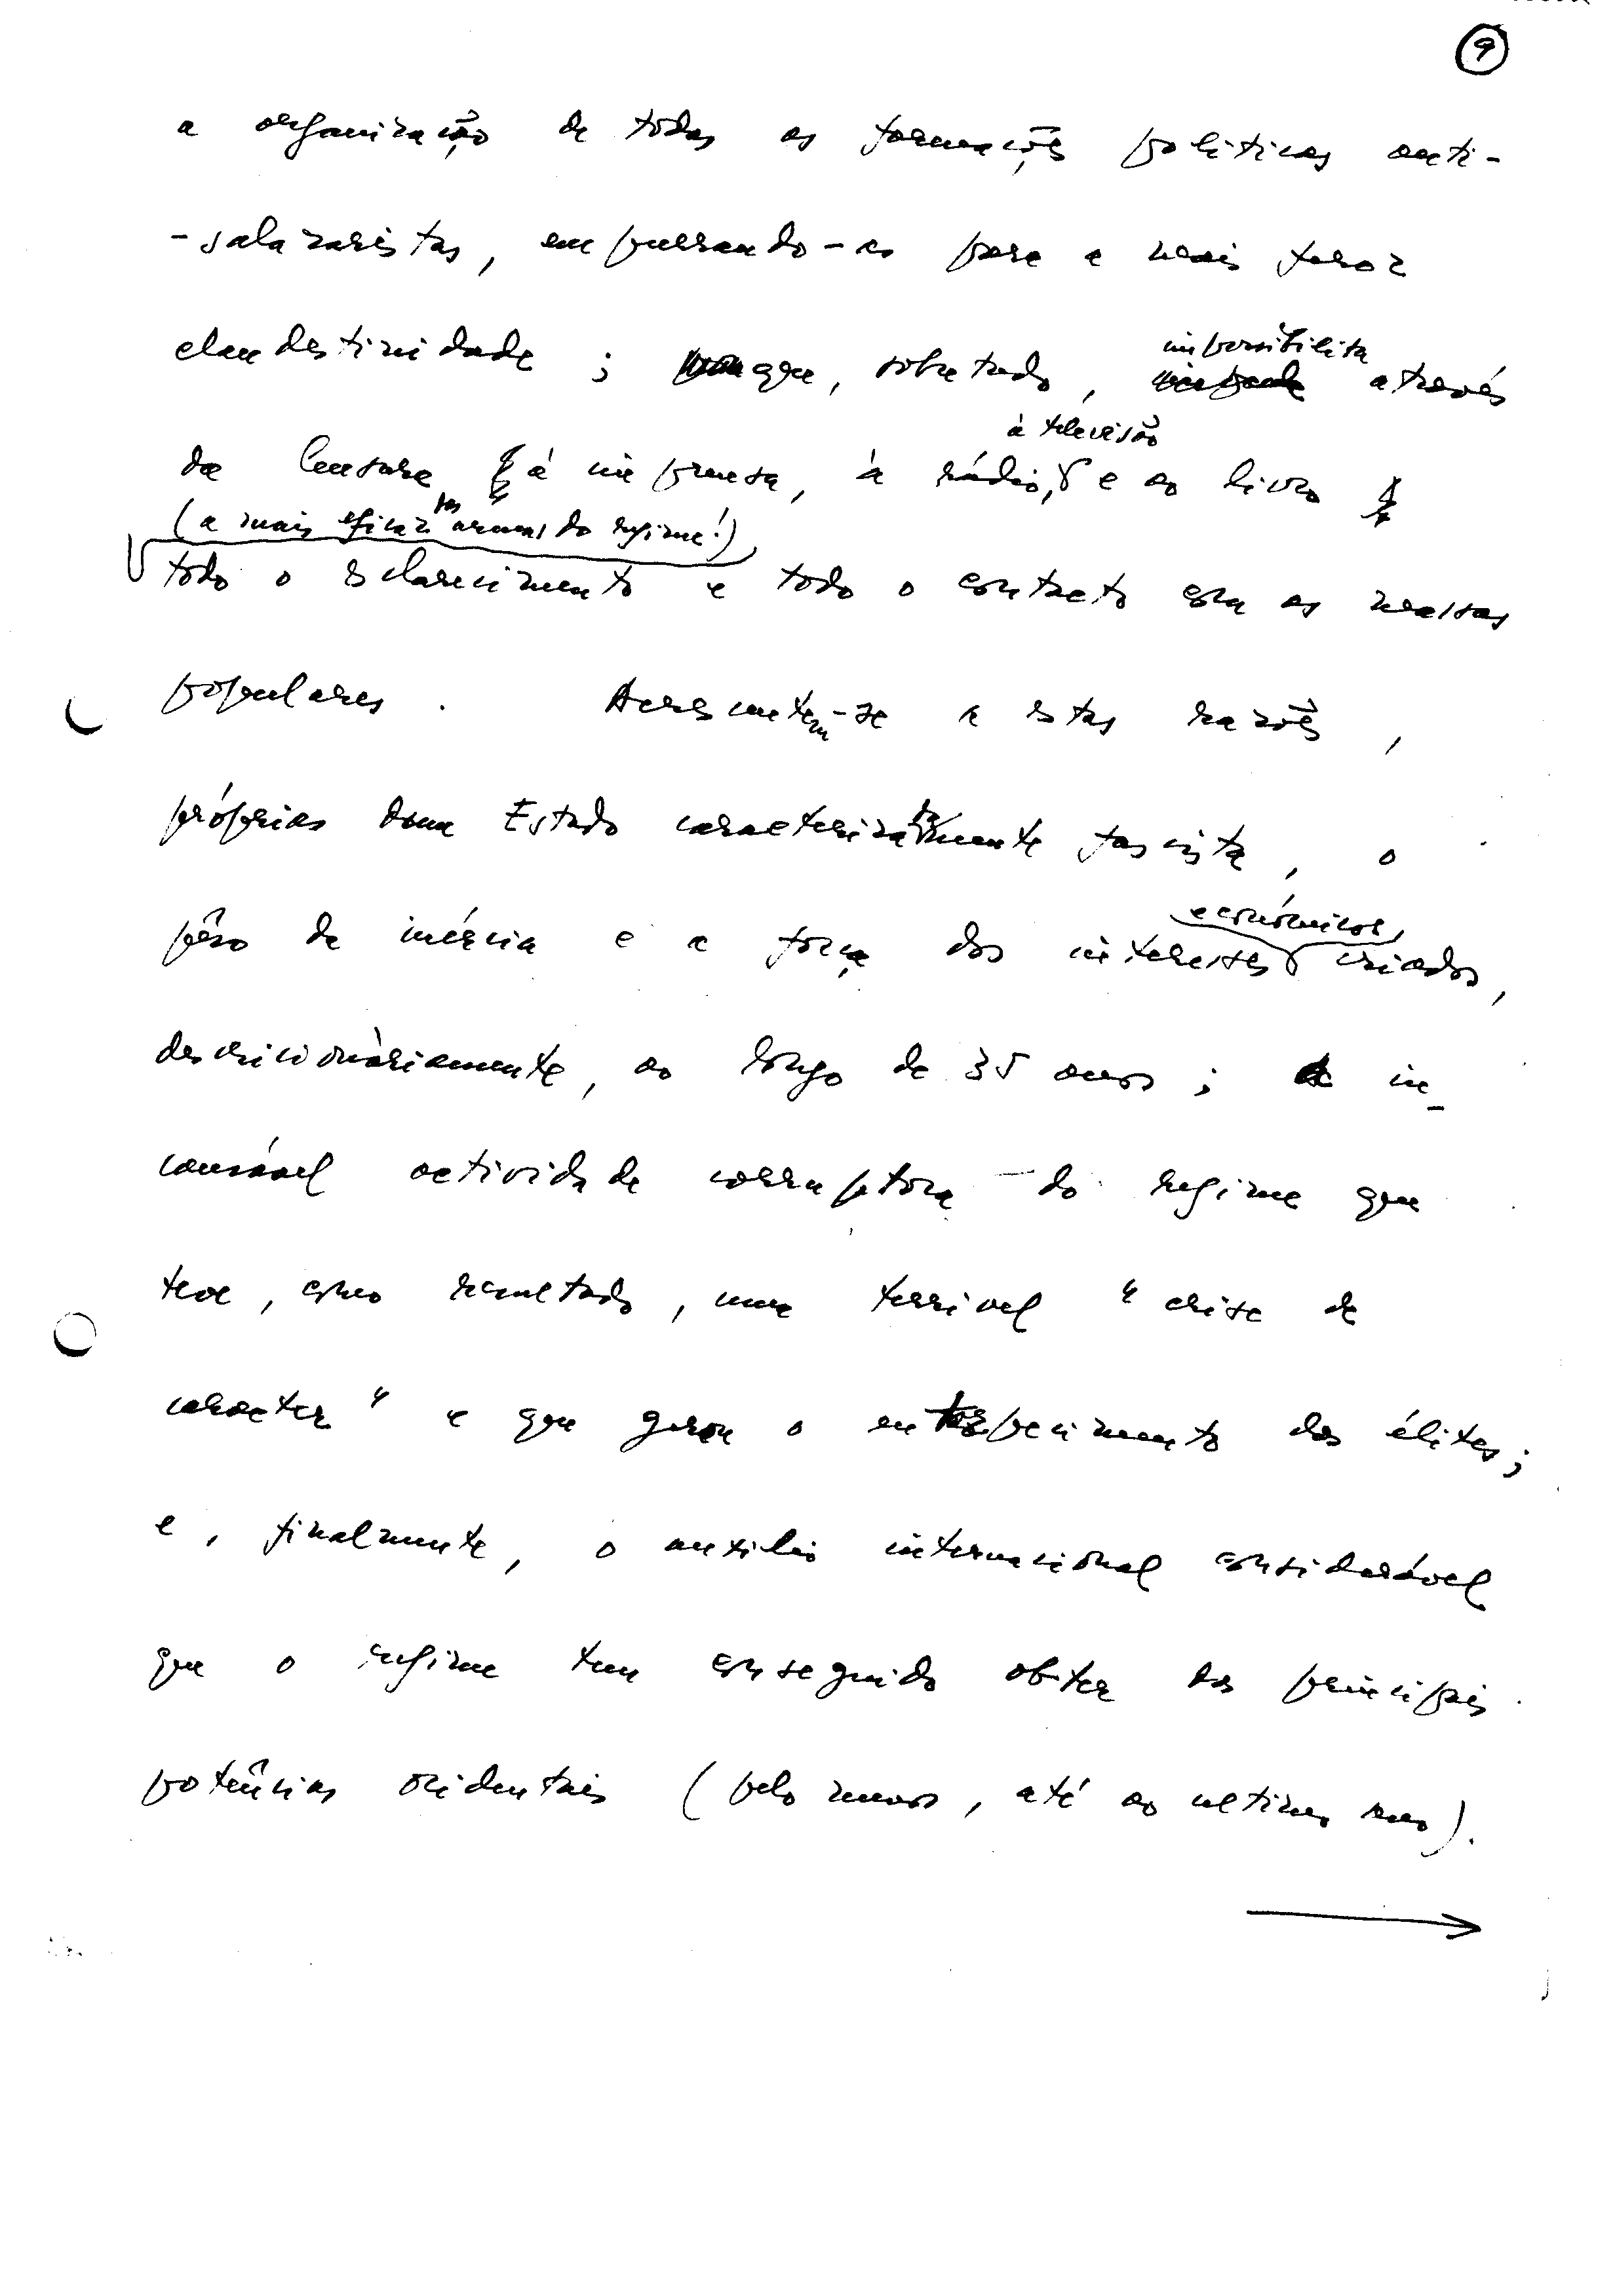 9
a organização de todas as formações politicas anti-
-salazaristas, empurrando-as para a mais feroz
clandestinidade ; que, sobretudo, impossibilita através
da Censura à imprensa, à rádio, à televisão e ao livro
(a mais eficaz das armas do regime!)
todo o esclarecimento e todo o contacto com as massas
populares. Acrescentem-se a estas razões,
próprias dum Estado caracterizadamente fascista, o
pêso da inércia e a força dos interesses económicos, criados,
descricionàriamente, ao longo de 35 anos; a in-
cansável actividade corruptora do regime que
teve, como resultado, uma terrivel "crise de
caracter" e que gerou o entorpecimento das élites;
e, finalmente, o auxilio internacional considerável
que o regime tem conseguido obter das principais
potências ocidentais (pelo menos, até ao ultimo ano).